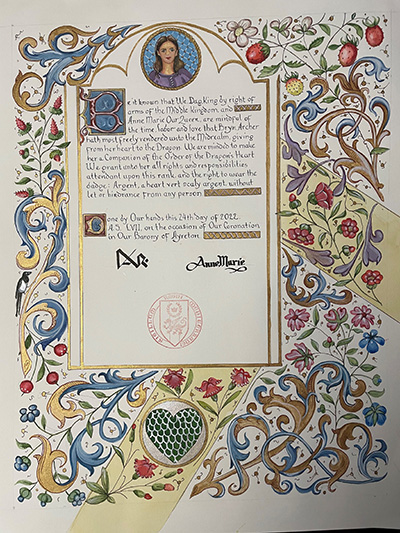 Be it known that We Dag, King by right of
arms of the Middle Kingdom, and
Anne Marie Our Queen, are mindful of
the time, labor and love that Bryn Archer
hath most freely rendered unto the Midrealm, giving
from her heart to the Dragon. We are minded to make
her a Companion of the Order of the Dragon's Heart.
We grant unto her all rights and responsibilities
attendant upon this rank, and the right to wear the
badge: Argent, a heart vert scaly argent, without
let or hindrance from any person.
Done by Our hands this 24th day of 2022,
A.S. LVII, on the occasion of Our Coronation
in Our Barony of
AnneMarie